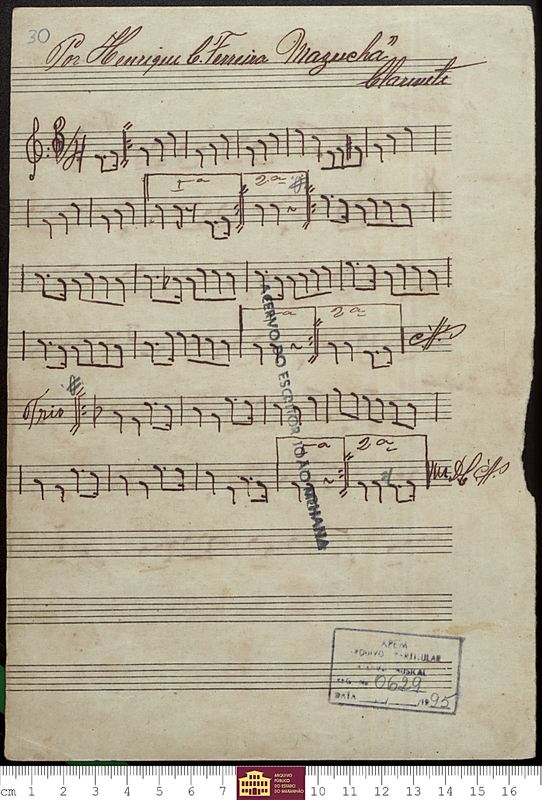 30
Por Henrique C. Ferreira Mazucha"
Clarinete
1ª
2ª
ª
2ª
Trio
ª
2ª
ACERVO DO ESCRITOR JOÃO MOHANA
APEM
ARQUIVO PARTICULAR
MUSICAL
REG. Nº 0629
DATA / /1995
cm 1 2 3 4 5 6 7 10 11 12 13 14 15 16
ARQUIVO
PÚBLICO
DO ESTADO
DO MARANHÃO